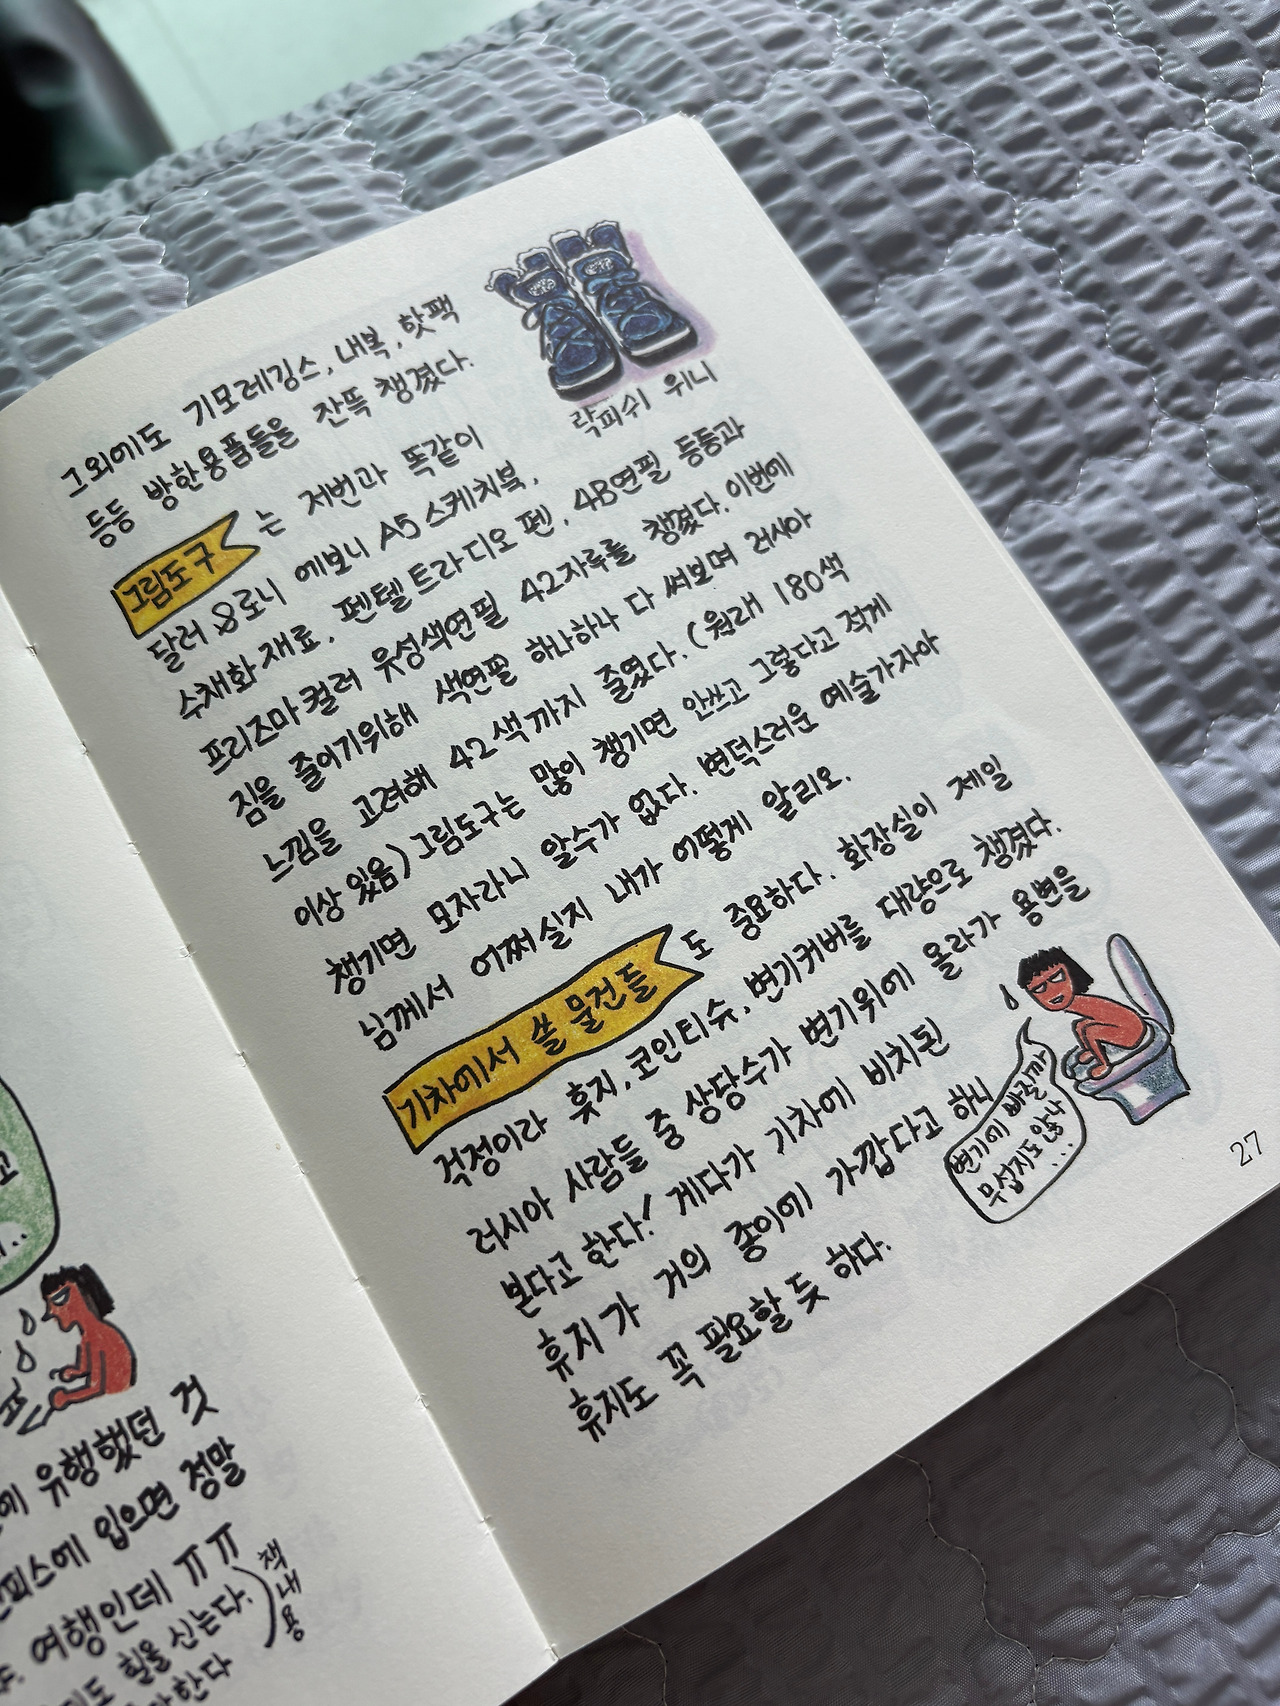 고
..
에 유행했던 것
피스에 입으면 정말
여행인데 ㅠㅠ
도 힐을 신는다.
한다
책내용
그외에도 기모레깅스, 내복, 핫팩
등등 방한용품들을 잔뜩 챙겼다.
락피쉬 위니
그림도구는 저번과 똑같이
달러 로니 에보니 A5 스케치북,
수채화 재료, 펜텔 트라디오 펜, 4B연필 등등과
프리즈마 컬러 유성색연필 42자루를 챙겼다. 이번에
짐을 줄이기위해 색연필 하나하나 다 써보며 러시아
느낌을 고려해 42색까지 줄였다. (원래 180색
이상 있음) 그림도구는 많이 챙기면 안쓰고 그렇다고 적게
챙기면 모자라니 알수가 없다. 변덕스러운 예술가자아
님께서 어쩌실지 내가 어떻게 알리오.
기차에서 쓸 물건들도 중요하다. 화장실이 제일
걱정이라 휴지, 코인티슈, 변기커버를 대량으로 챙겼다.
러시아 사람들 중 상당수가 변기위에 올라가 용변을
본다고 한다! 게다가 기차에 비치된
휴지가 거의 종이에 가깝다고 하니
휴지도 꼭 필요할 듯 하다.
변기에 빠질까
무섭지도 않나
...
27